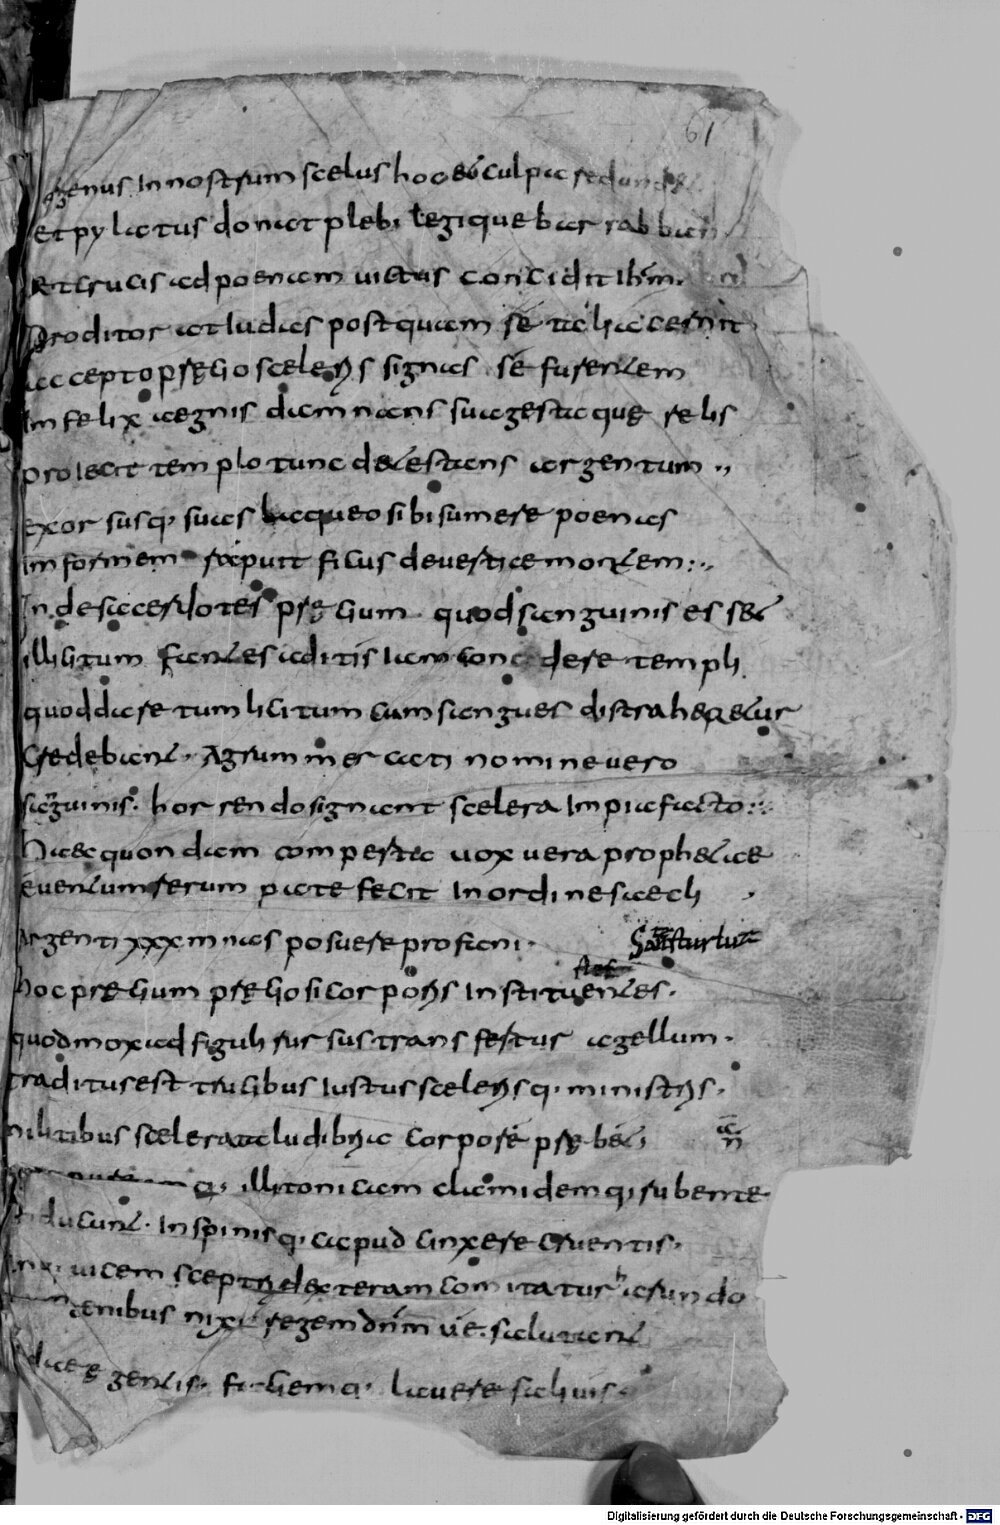 61
genus In nostrum scelus hoc & culpa redund&
Et pylatus donat plebi legique bar rabban
Et crucis ad poenam uictus concidit Ihm.
Proditor at Iudas postquam se talia cernit
accepto prętio sceleris signas se furentem
Imfelix aegnis damnans suagestaque relis
proiecit templo tunc detestans argentum
exorsusq; suas laqueo sibi sumere poenas
Imformem rapuit ficus deuertice mortem
In desacerdotes prętium quod sanguinis ess&
illicitum fantes aditis iam condere templi
quod dare tum licitum cum sangues distraheretur
Credebant. Agrum mercati nomine uero
sanguinis. horrendo signant scelera Impia facto
Haec quondam comperta uox uera prophetae
euentum rerum patefecit In ordine saecli
Argenti xxx mnas posuere profani.
Hoc prętium prętiosi corporis Instituentes.
quod mox ad figuli rursus transfertur agellum.
traditus est trucibus Iustus scelerisq; ministris.
militibus scelerata ludibria corpore pręb&
q; illi tonicam clamidemq; rubente
Inducunt. In spinisq; caput cinxere cruentis.
Inq; uicem sceptri dexteram comitatur harundo
nixi regem dnm uae. salutant
gentis. faciemq; lauere saliuis.
Digitalisierung gefördert durch die Deutsche Forschungsgemeinschaft - DFG